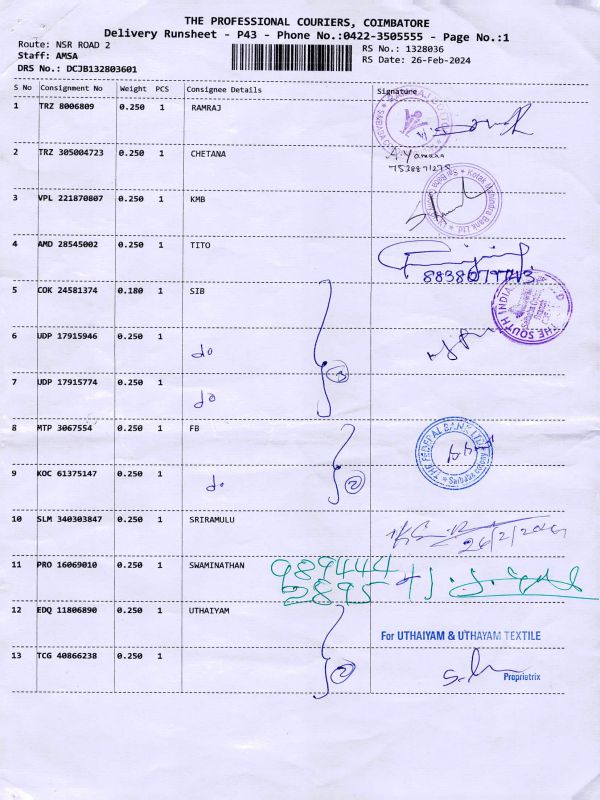 THE PROFESSIONAL COURIERS, COIMBATORE
Delivery Runsheet - P43 - Phone No.:0422-3505555 - Page No.:1
Route: NSR ROAD 2
Staff: AMSA
DRS No.: DCJB132803601
RS No.: 1328036
RS Date: 26-Feb-2024
S No Consignment No Weight PCS Consignee Details Signature
1 TRZ 8006809 0.250 1 RAMRAJ
2 TRZ 305004723 0.250 1 CHETANA
A.Yamuna
7538871275
3 VPL 221870807 0.250 1 KMB
Kotak Mahindra Bank Ltd.
4 AMD 28545002 0.250 1 TITO
5 COK 24581374 0.180 1 SIB
THE SOUTH INDIA
6 UDP 17915946 0.250 1 do
3
7 UDP 17915774 0.250 1 do
8 MTP 3067554 0.250 1 FB
THE FEDERAL BANK LTD
Saibaba colony
9 KOC 61375147 0.250 1 do
2
10 SLM 340303847 0.250 1 SRIRAMULU
26/2/2024
11 PRO 16069010 0.250 1 SWAMINATHAN
989444
2895
12 EDQ 11806890 0.250 1 UTHAIYAM
For UTHAIYAM & UTHAYAM TEXTILE
13 TCG 40866238 0.250 1
2
Proprietrix